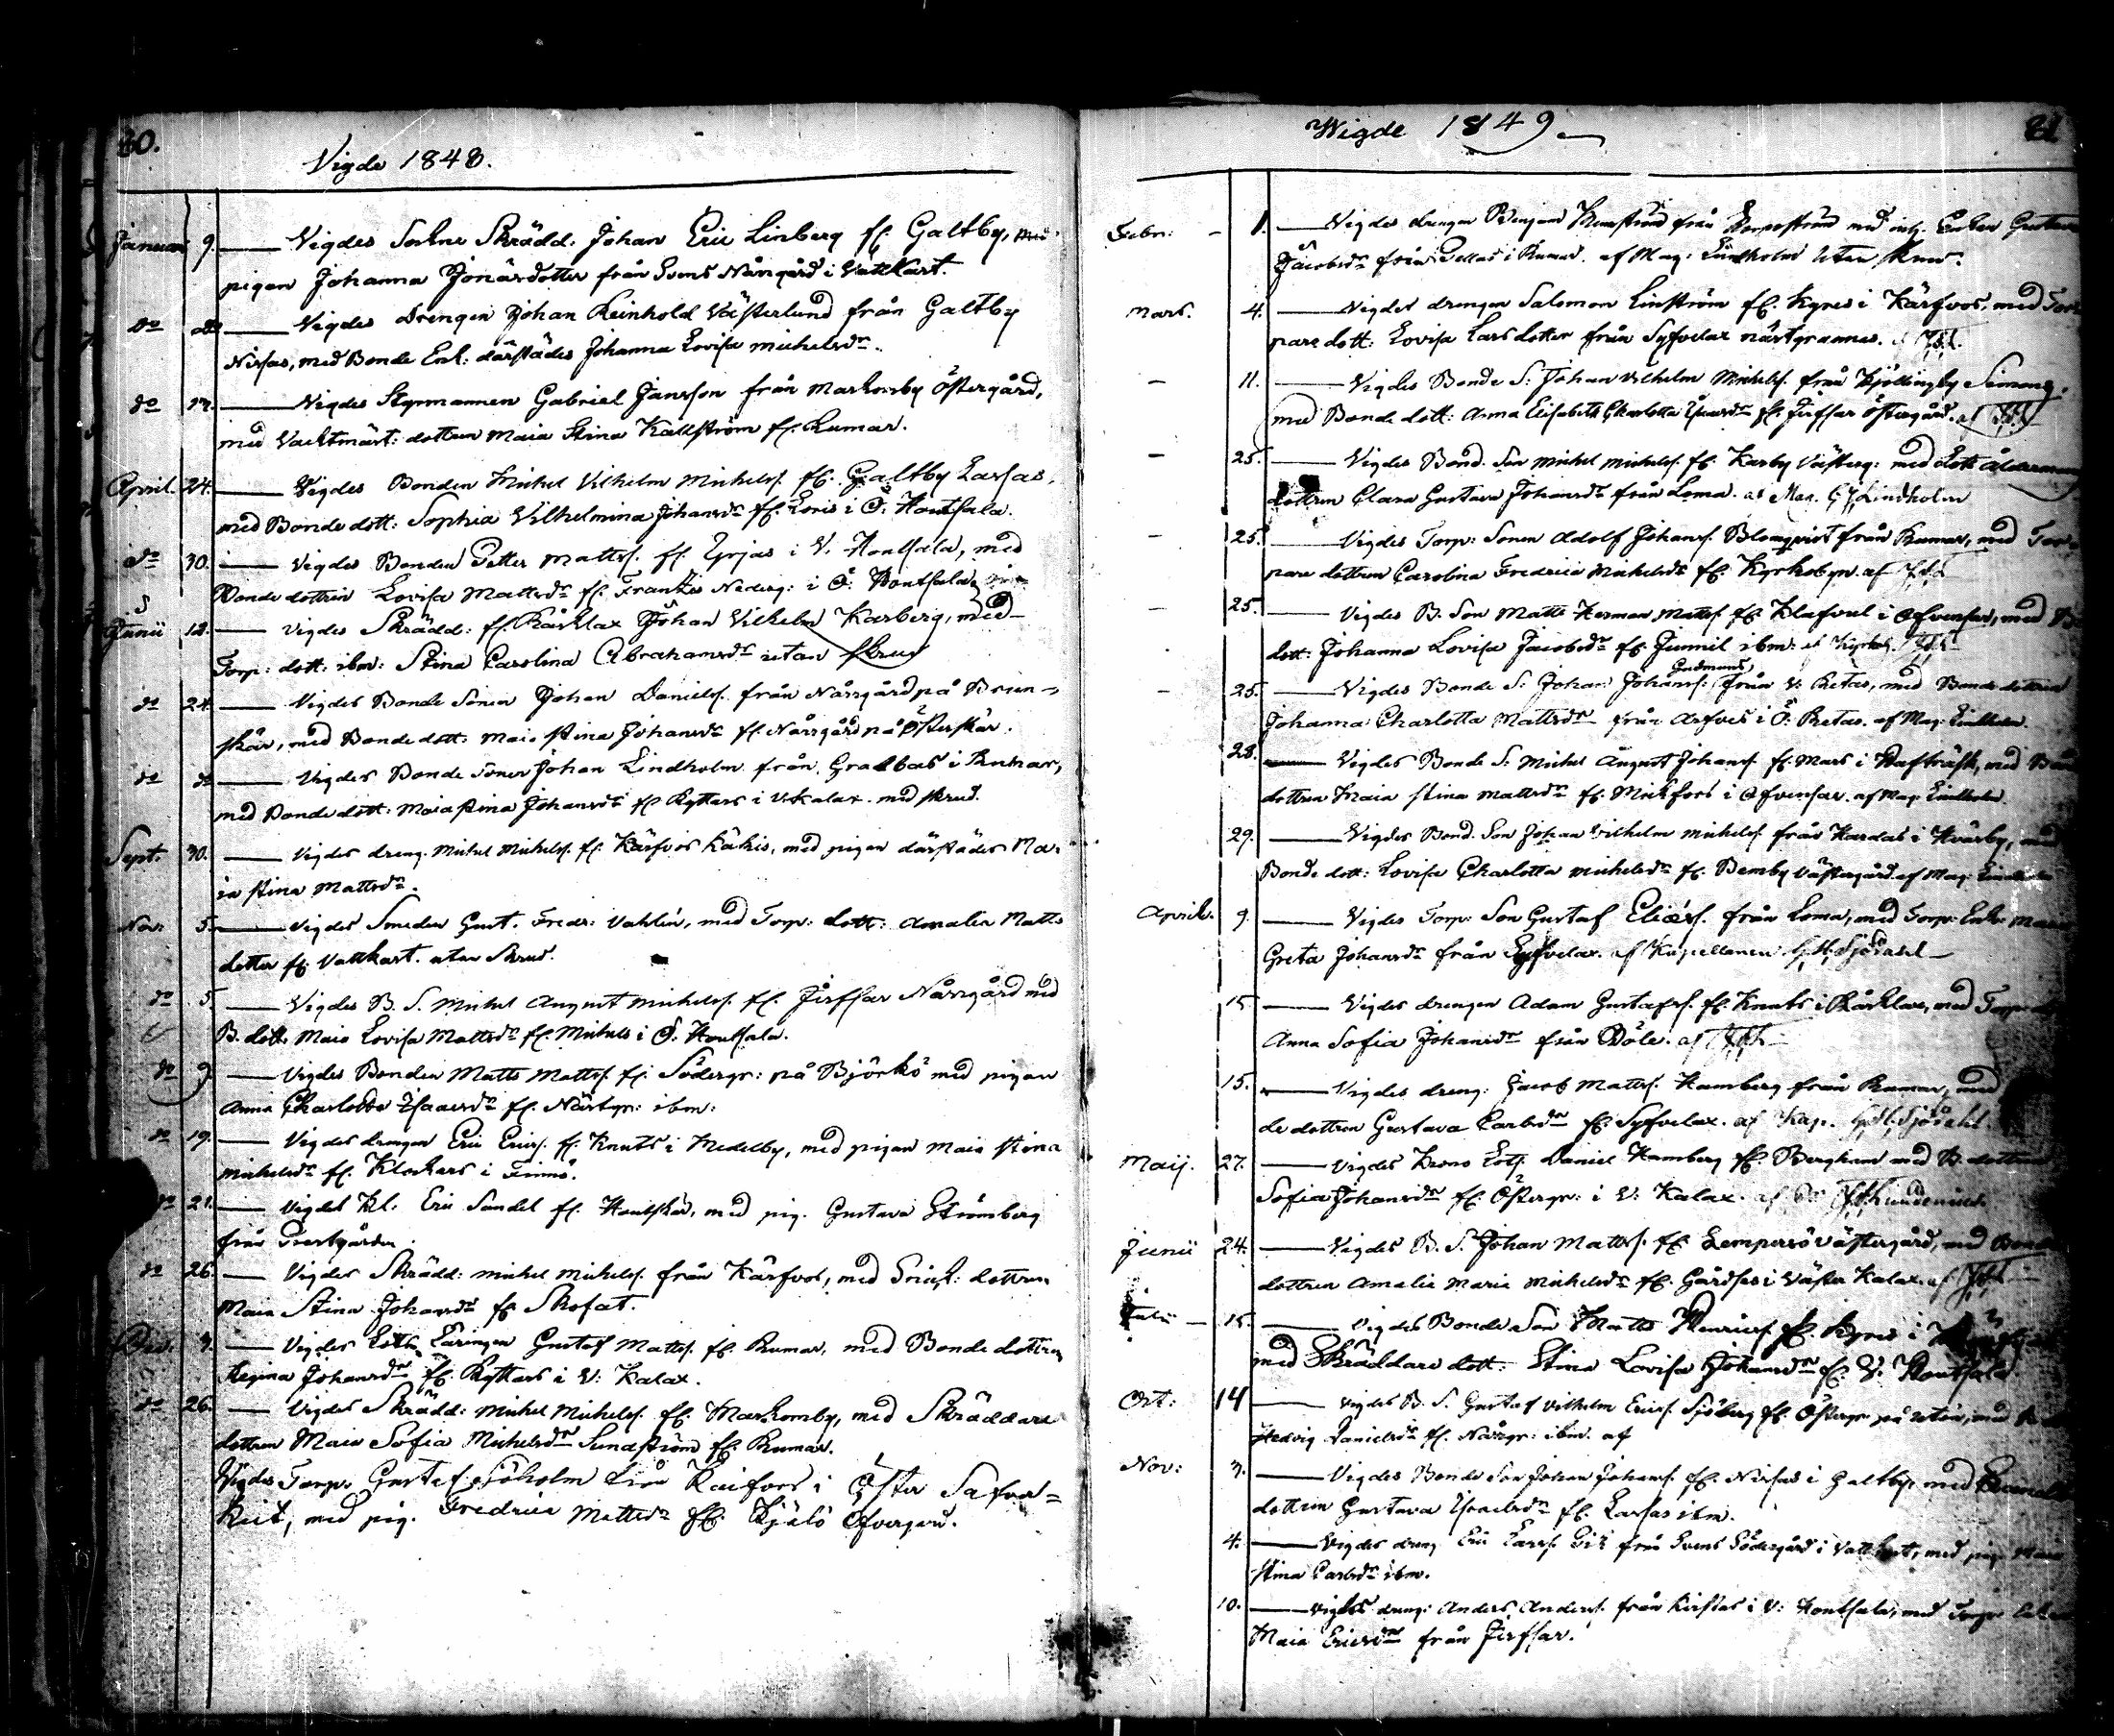 80.
Vigde 1848.
Januari 9. Vigdes Sockne Skrädd: Johan Eric Linberg fr. Galtby, med
pigan Johanna Jonasdotter från Svens Norrgård i Vattkast.
do do Vigdes Drengen Johan Reinhold Västerlund från Galtby
Nissas, med Bonde Enk: därstädes Johanna Lovisa Michelsdr.
do 27. Vigdes Styrmannen Gabriel Jansson från Markomby Östergård,
med Vacktmäst: dottren Maia Stina Kallström fr. Rumar.
April. 24. Vigdes Bonden Michel Vilhelm Michels. fr. Galtby Larsas,
med Bonde dott: Sophia Vilhelmina Johansdr fr. i Ö. Houtsala.
do 30. Vigdes Bonden Petter Matts. fr. Yrjas i V. Houtsala, med
Bonde dottren Lovisa Mattsdr fr. Frantsis Nederg: i Ö. Houtsala
Junii 12. Vigdes Skrädd: fr. Rårklax Johan Vilhelm Karberg, med
Torp: dott: ibm: Stina Carolina Abrahamsdr utan Skrud
do 24. Vigdes Bonde Sonen Johan Daniels. från Norrgård på Brun-
skär, med Bonde dott: Maia Stina Johansdr fr. Norrgård på Österskär.
do do Vigdes Bonde Sonen Johan Lindholm från Grabbas i Rumar,
med Bonde dott: Maia Stina Johansdr fr Ryttars i V. Kalax. med skrud.
Sept. 30. Vigdes dreng. Michel Michels. fr. Kärfvos Käkis, med pigan därstädes Ma-
ia Stina Mattsdr.
Nov: 5. Vigdes Smeden Gust. Fredr: Vahlén, med Torp: dott: Amalia Matts
dotter fr. Vattkast. utan Skrud.
do 5. Vigdes B. S. Michel August Michels. fr. Jirssar Norrgård med
B. dott. Maia Lovisa Mattsdr fr. Michels i Ö. Houtsala.
do 9. Vigdes Bonden Matts Matts. fr. Södergr: på Björkö med pigan
Anna Charlotta Isaacsdr fr. Norrgr: ibm:
do 19. Vigdes drengen Eric Erics. fr. Knuts i Medelby, med pigan Maia Stina
Michelsdr fr. Klockars i Finnö.
do 21. Vigdes Kl. Eric Sandel fr. Houtskär, med pig. Gustava Strömberg
från Prestgården.
do 26. Vigdes Skrädd: Michel Michels. från Kärfvos, med dottren
Maia Stina Johansdr fr. Skofat.
Dec. 3. Vigdes Lots Läringen Gustaf Matts. fr. Rumar, med Bonde dottren
Regina Johansdr fr. Ryttars i V: Kalax.
do 26. Vigdes Skrädd: Michel Michels. fr. Markomby, med Skräddare
dottren Maia Sofia Michelsdr Sundström fr. Rumar.
Vigdes Torp: Gustaf Sjöholm från i Öster
med pig. Fredrica Mattsdr fr. Kjälö Öfvergård.
Wigde 1849
81
Febr: 1. Vigdes drengen Benjam från med Enkan Gustava
Jacobsdr från Pellas i Rumar. af Mag: Lindholm utan Krus.
Mars. 4. Vigdes drengen Salomon Linström fr. Kyres i Kärfvos, med Tor-
pare dott: Lovisa Lars dotter från Syfvelax
11. Vigdes Bonde S: Johan Vilhelm Michels. från Kjöttingby Simons,
med Bonde dott: Anna Elisabeth Charlotta fr. Jirssar Östergård. af
25. Vigdes Bond. Son Michel Michels. fr. Korby Västerg: med
dottren Clara Gustava Johansdr från Loma. af Mag. Lindholm
25. Vigdes Torp: Sonen Adolf Johans. Blomqvist från Rumar, med Tor-
pare dottren Carolina Fredrica Michelsdr fr. Kyrkobyn. af
25. Vigdes B. Son Matts Herman Matts. fr. Klafvus i Ofvensor, med
dott: Johanna Lovisa Jacobsdr fr. Junnil ibm: af
Gudmunds
25. Vigdes Bonde S: Johan Johans. från V: Retais, med Bonde dottren
Johanna Charlotta Mattsdr från Arfves i Ö: Retais. af Mag: Lindholm.
28. Vigdes Bonde S: Michel August Johans. fr. Mars i Rafträsk, med
dottren Maia Stina Mattsdr fr. i Ofvensor. af Mag: Lindholm.
29. Vigdes Bond. Son Johan Vilhelm Michels. från Kardas i Kvarby, med
Bonde dott: Lovisa Charlotta Michelsdr fr. Bemby Västergård. af Mag:
April. 9. Vigdes Torp: Son Gustaf Eliæs. från Loma, med Torp: Enk:
Greta Johansdr från Syfvelax. af Kapellanen Sjödahl
15. Vigdes drengen Adam Gustafs. fr. Knuts i Rårklax, med Torp:
Anna Sofia Johansdr från Böle. af
15. Vigdes dreng: Jacob Matts. Hamberg från Rumar, med
de dottren Gustava Carlsdr fr. Syfvelax. af Kap. Sjödahl.
Maij. 27. Vigdes Krono Lots. Daniel Hamberg fr. Berghamn med B. dottren
Sofia Johansdr fr. Östergr: i V: Kalax. af
Junii 24. Vigdes B. S. Johan Matts. fr. Lempersö Västergård, med
dottren Amalia Maria Michelsdr fr. Gårdses i Väster Kalax. af
Julii 15. Vigdes Bonde Son Matts Henrics. fr. Kyres i
med Skräddare dott: Stina Lovisa Johansdr fr. V: Houtsala.
Oct: 14 Vigdes B. S. Gustaf Vilhelm Erics. Sjöberg fr. Östergr: på, med
Hedvig Danielsdr fr. Norrgr: ibm. af
Nov: 3. Vigdes Bonde Son Johan Johans. fr. Nissas i Galtby, med
dottren Gustava Israelsdr fr. Larsas ibm.
4. Vigdes dreng Eric Lars. från Svens Södergård i Vattkast, med pig: Maia
Stina Carlsdr ibm.
10. Vigdes dreng: Anders Anders. från i V: Houtsala, med Torp:
Maia Ericsdr från Jirssar.